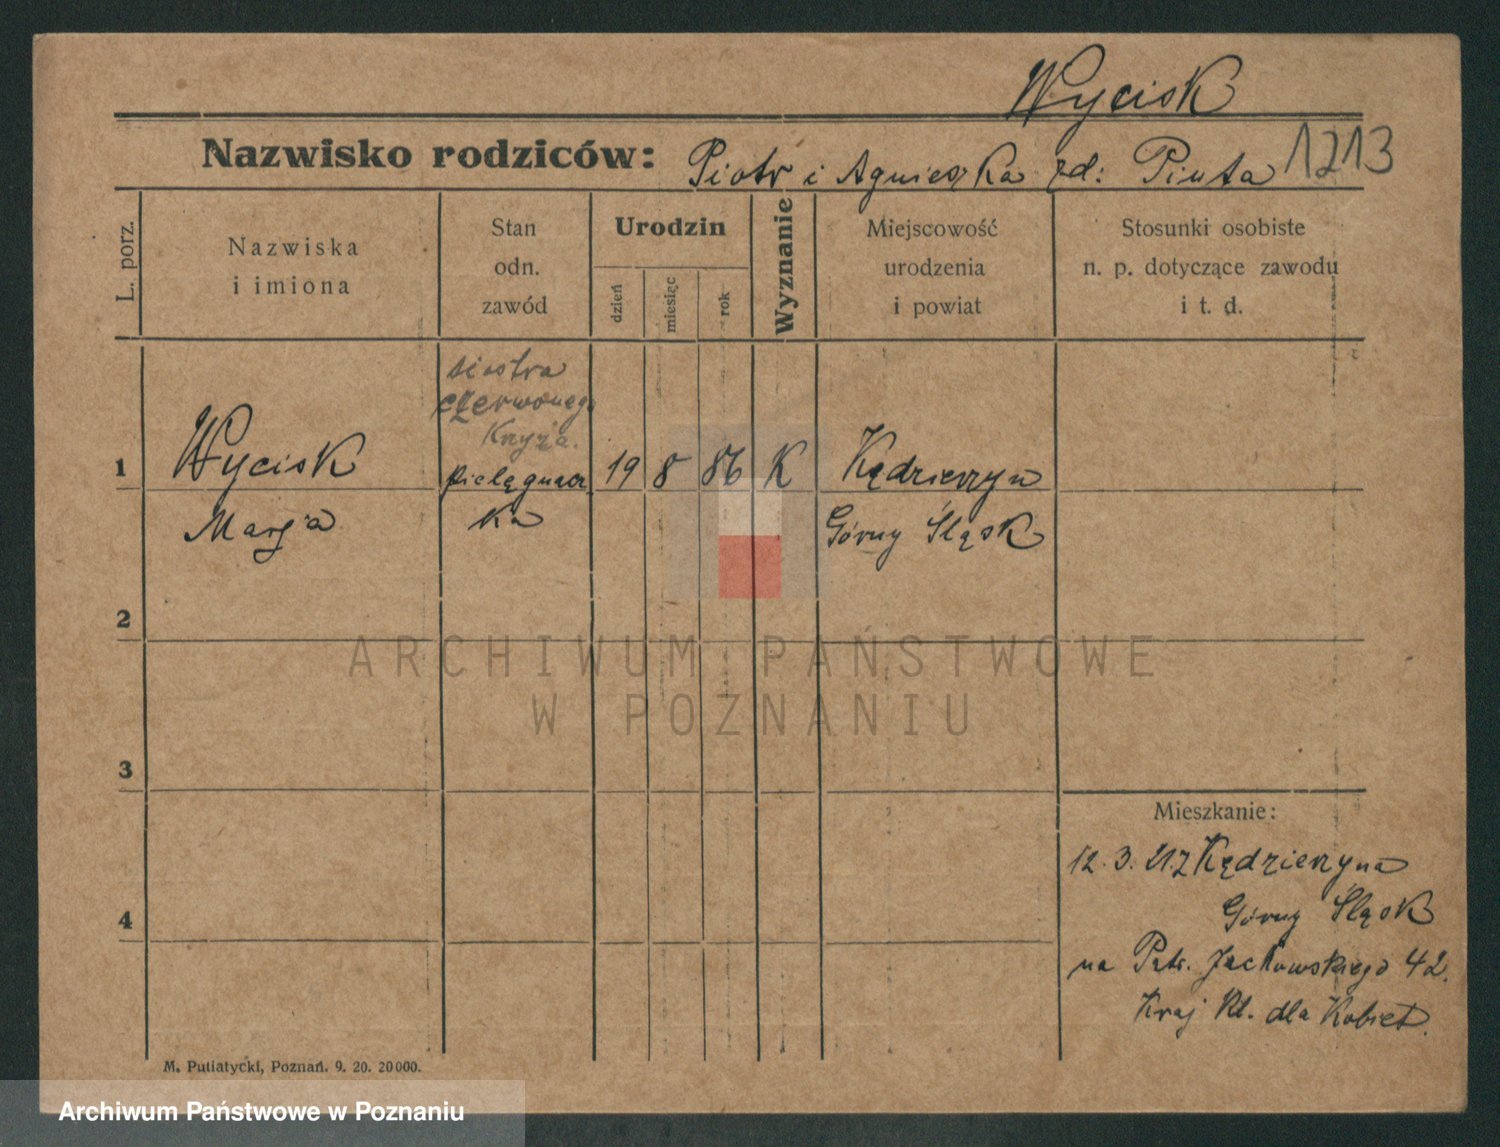 Wycisk
Nazwisko rodziców: Piotr i Agnieszka zd: Piuta 1213
L. porz.
Nazwiska
i imiona
Stan
odn.
zawód
Urodzin
dzień
miesiąc
rok
Wyznanie
Miejscowość
urodzenia
i powiat
Stosunki osobiste
n. p. dotyczące zawodu
i t. d.
siostra
czerwonego
Krzyża.
1 Wycisk pielęgniar 19 8 86 K Kędzierzyn
Marja ka Górny Śląsk
2
3
4
ARCHIWUM PAŃSTWOWE
W POZNANIU
Mieszkanie:
12. 3. 21. z Kędzierzyna
Górny Śląsk
na Patr. Jackowskiego 42.
Kraj Kl. dla Kobiet.
M. Putiatycki, Poznań. 9. 20. 20000.
Archiwum Państwowe w Poznaniu